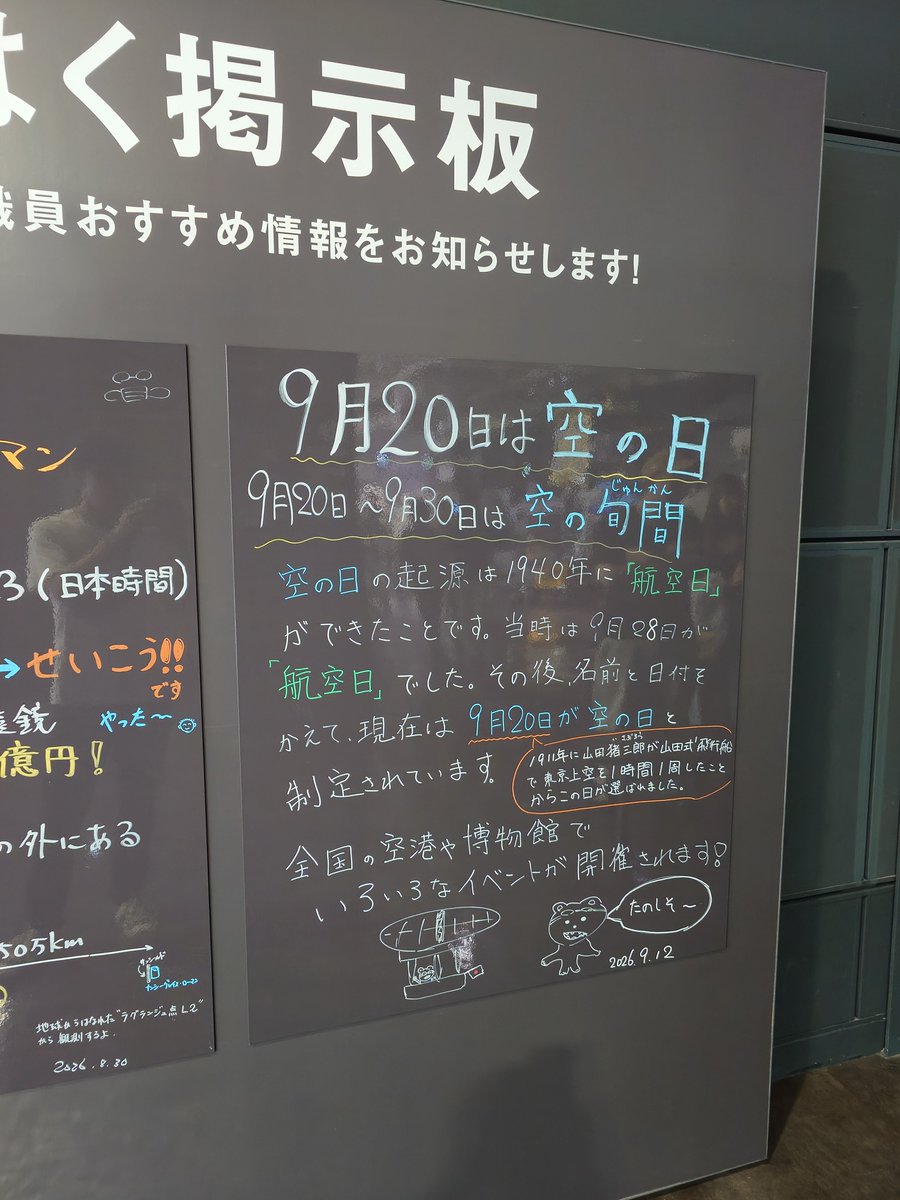 はく掲示板
職員おすすめ情報をお知らせします!
マン
3(日本時間)
→せいこう!!
です
鏡
やった〜
億円!
の外にある
505km
サンシールド
ナンシー・グレイス・ローマン
地球からはなれた"ラグランジュ点L2"
から観測するよ.
2026.8.30
9月20日は空の日
じゅんかん
9月20日〜9月30日は空の旬間
空の日の起源は1940年に「航空日」
ができたことです。当時は9月28日が
「航空日」でした。その後、名前と日付を
かえて、現在は9月20日が空の日と
制定されています。
いさぶろう
1911年に山田猪三郎が山田式飛行船
で東京上空を1時間1周したこと
からこの日が選ばれました。
全国の空港や博物館で
いろいろなイベントが開催されます!
たのしそ〜
2026.9.12